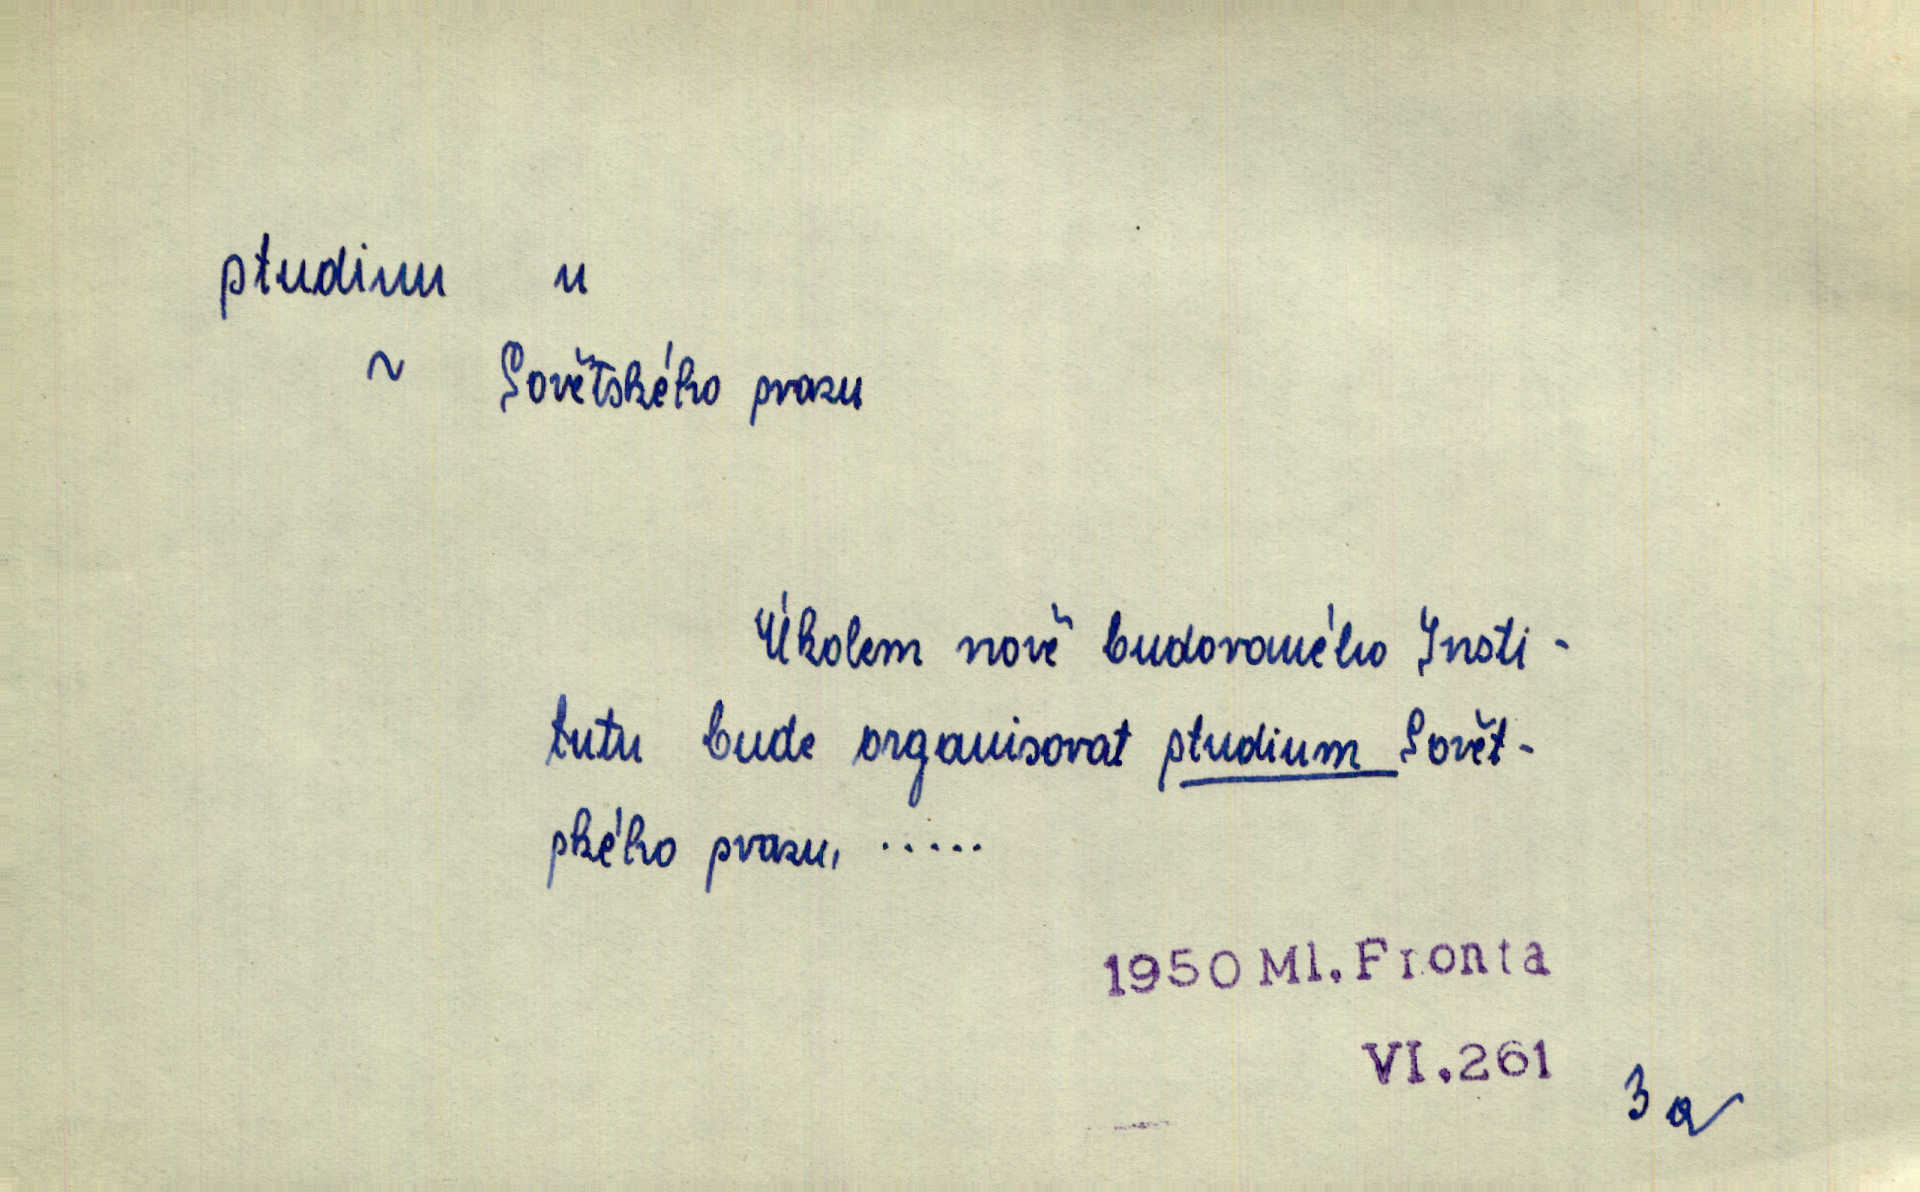 studium n
~ Sovětského svazu
Úkolem nově budovaného Insti-
tutu bude organisovat studium Sovět-
ského svazu, .....
1950 Ml. Fronta
VI.261
3a